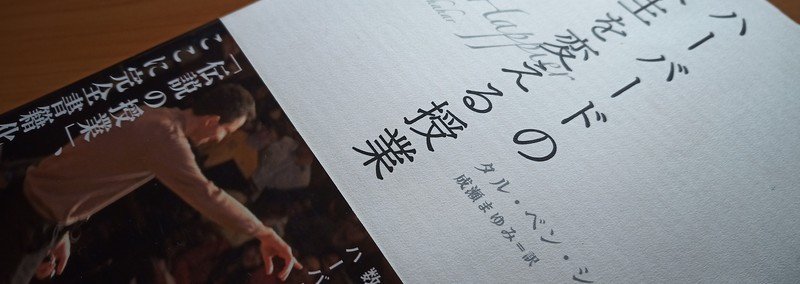 ハーバードの
生を変える授業
Happier
タル・ベン・シ
成瀬まゆみ=訳
「伝説の授業」、
ここに完全書籍化
数
ハーバ